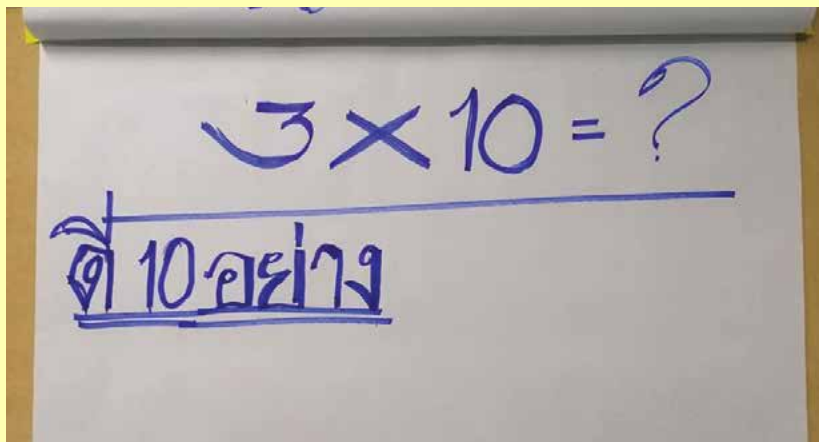 3 × 10 = ?
ดี 10 อย่าง